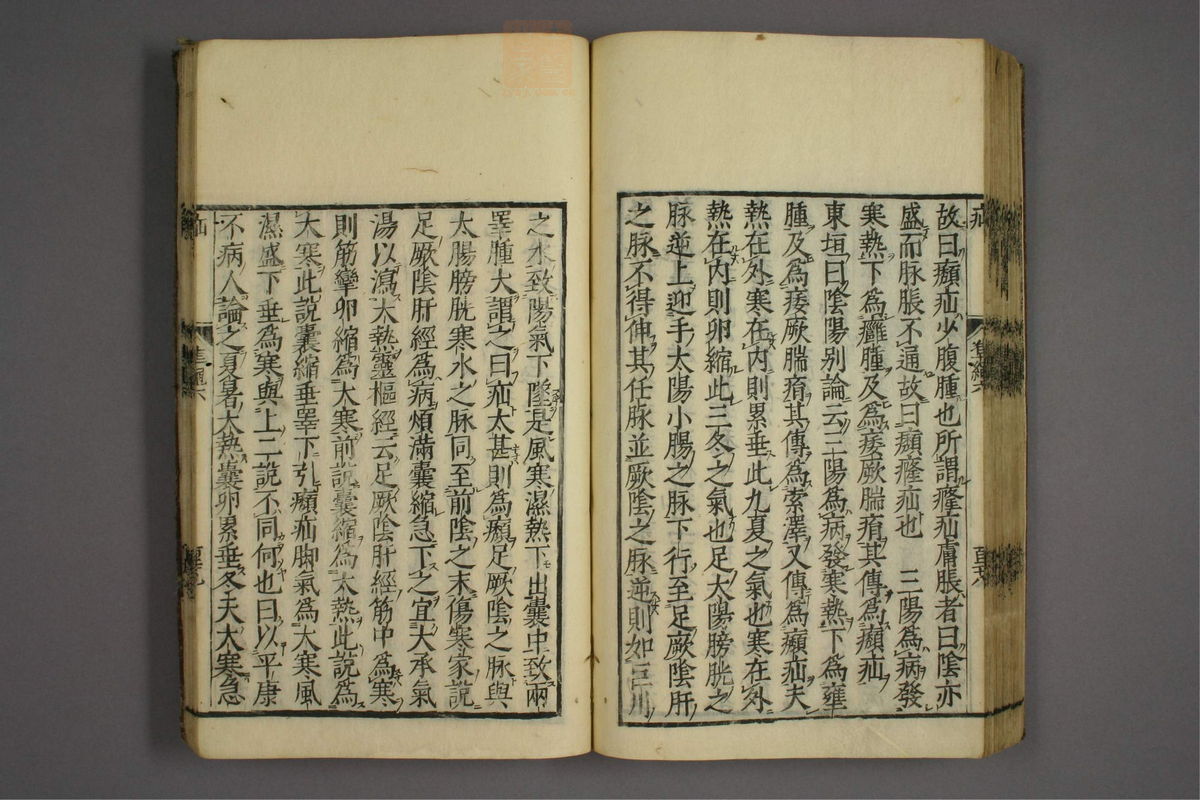 故曰㿗疝少腹腫也所謂㿗癃疝膚脹者曰陰亦
盛而脉脹不通故曰㿗癃疝也　三陽為病發
寒熱下為癰腫及為痿厥腨㾓其傳為㿗疝
東垣曰陰陽別論云三陽為病發寒熱下為壅
腫及為痿厥腨㾓其傳為索澤又傳為㿗疝夫
熱在外寒在内則累垂此九夏之氣也寒在外
熱在内則卵縮此三冬之氣也足太陽膀胱之
脉逆上迎手太陽小腸之脉下行至足厥陰肝
之脉不得伸其任脉並厥陰之脉逆則如巨川
之水致陽氣下墜是風寒濕熱下出囊中致兩
睪腫大謂之曰疝太甚則為㿗足厥陰之脉與
太腸膀胱寒水之脉同至前陰之末傷寒家說
足厥陰肝經為病煩滿囊縮急下之宜大承氣
湯以瀉大熱靈樞經云足厥陰肝經筋中為寒
則筋攣卵縮為大寒前說囊縮為大熱此說為
大寒此說囊縮垂睪下引㿗疝脚氣為大寒風
濕盛下垂為寒與上二說不同何也曰以平康
不病人論之夏暑大熱囊卵累垂冬天大寒急
疝